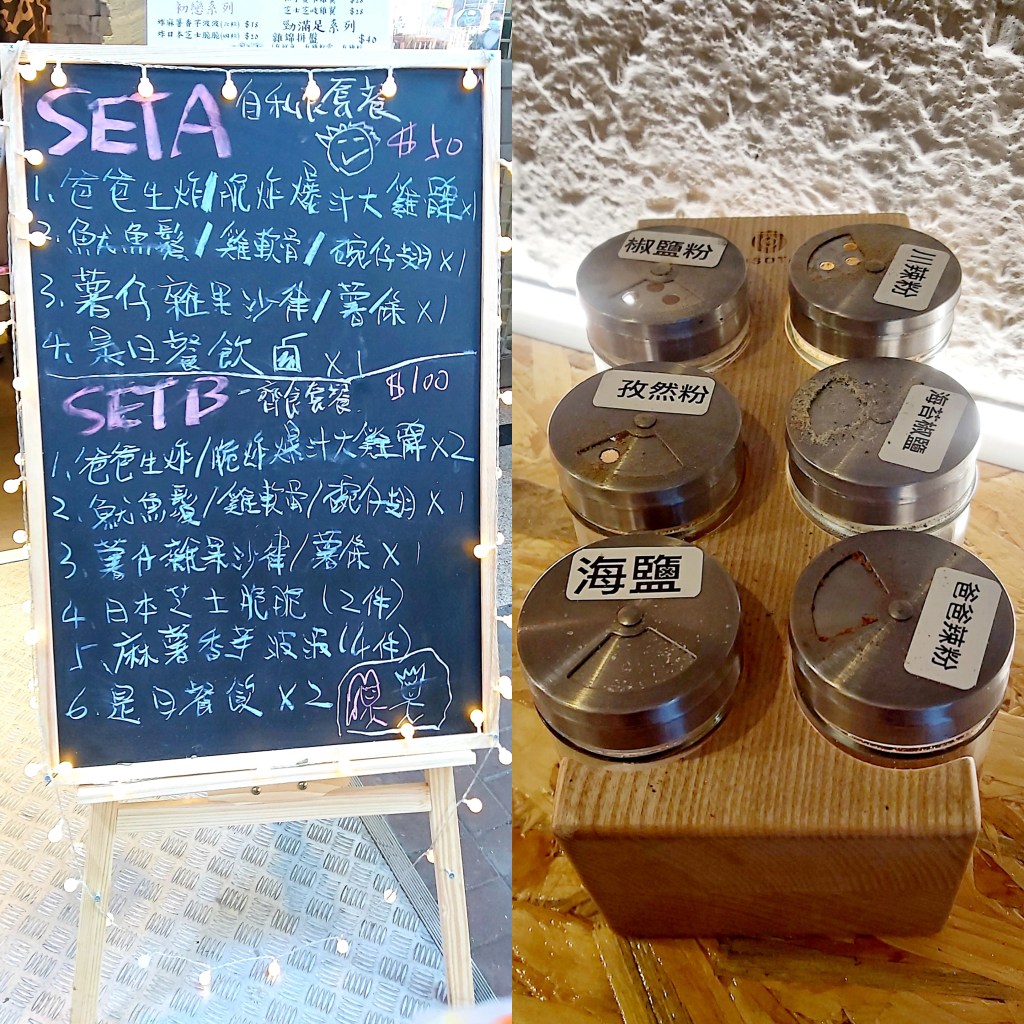 初戀系列
炸麻薯香芋波波(4粒) $18
炸日本芝士脆脆(4粒) $20
芝士芝吱雞翼 $28
勁滿足系列
雜錦拼盤 $40
SET A 自私家套餐
$50
1. 爸爸生炸/脆炸爆汁大雞髀x1
2. 魷魚鬚/雞軟骨/碗仔翅x1
3. 薯仔雜果沙律/薯條x1
4. 是日餐飲 x1
SET B - 齊食套餐 $100
1. 爸爸生炸/脆炸爆汁大雞髀x2
2. 魷魚鬚/雞軟骨/碗仔翅x1
3. 薯仔雜果沙律/薯條x1
4. 日本芝士脆脆(2件)
5. 麻薯香芋波波(4件)
6. 是日餐飲x2
椒鹽粉
川辣粉
孜然粉
海苔椒鹽
海鹽
爸爸辣粉